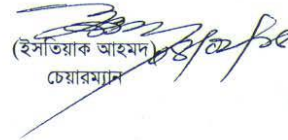 (ইসতিয়াক আহমদ)
চেয়ারম্যান